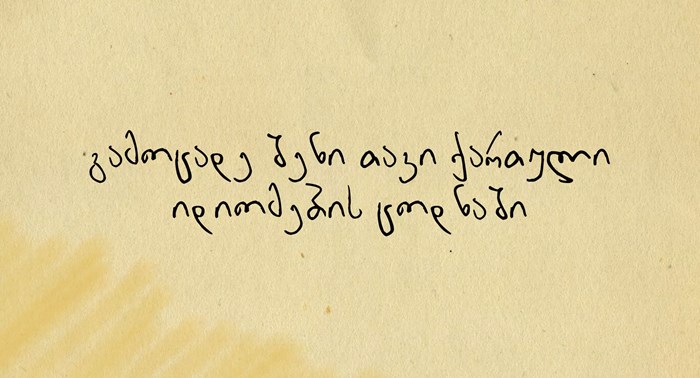 გამოცადე შენი თავი ქართული
იდიომების ცოდნაში